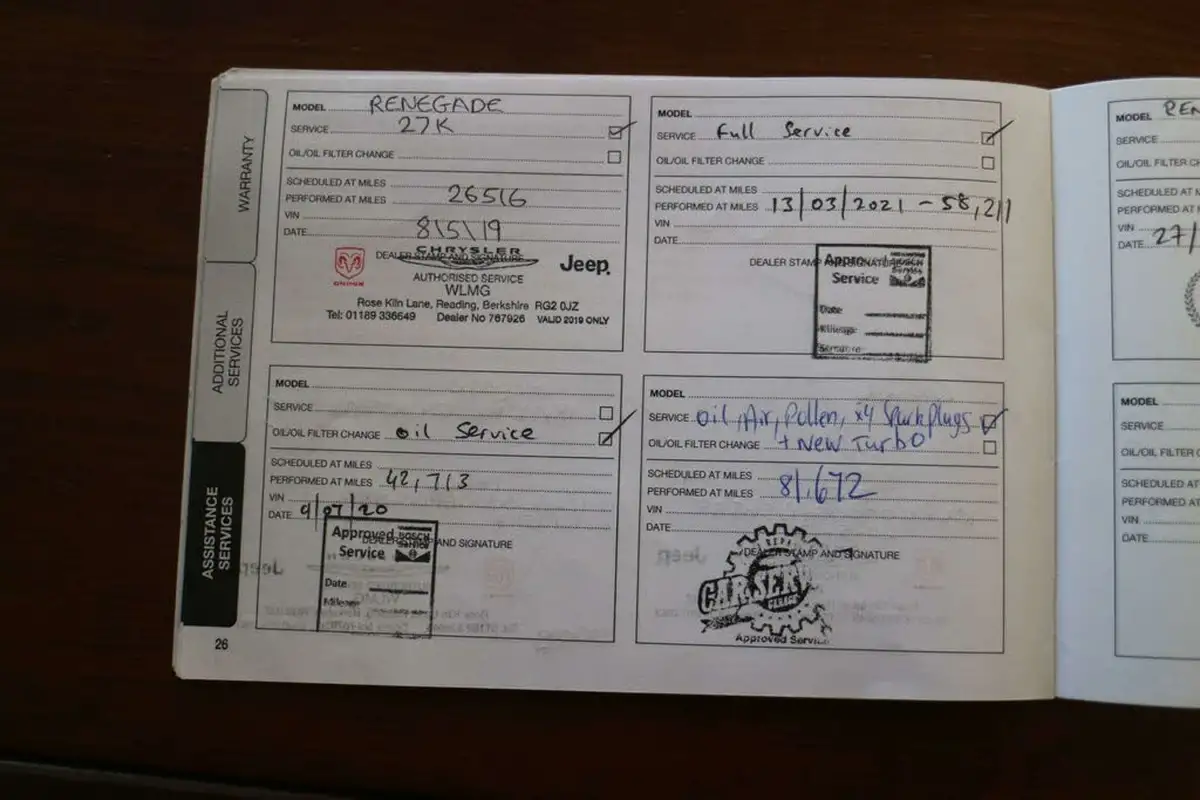 WARRANTY
ADDITIONAL SERVICES
ASSISTANCE SERVICES
MODEL RENEGADE
SERVICE 27K
OIL/OIL FILTER CHANGE
SCHEDULED AT MILES
PERFORMED AT MILES 26516
VIN
DATE 8\5\19
CHRYSLER
DEALER STAMP AND SIGNATURE
DODGE
Jeep
AUTHORISED SERVICE
WLMG
Rose Kiln Lane, Reading, Berkshire RG2 0JZ
Tel: 01189 336649 Dealer No 767926 VALID 2019 ONLY
MODEL
SERVICE Full Service
OIL/OIL FILTER CHANGE
SCHEDULED AT MILES
PERFORMED AT MILES 13/03/2021 - 58,211
VIN
DATE
DEALER STAMP AND SIGNATURE
Approved BOSCH
Service
Date
Mileage
Signature
MODEL
SERVICE
OIL/OIL FILTER CHANGE oil Service
SCHEDULED AT MILES
PERFORMED AT MILES 42,713
VIN
DATE 9/07/20
DEALER STAMP AND SIGNATURE
Approved BOSCH
Service
Date
Mileage
MODEL
SERVICE Oil, Air, Pollen, x4 Sparkplugs
OIL/OIL FILTER CHANGE + New Turbo
SCHEDULED AT MILES
PERFORMED AT MILES 81,672
VIN
DATE
DEALER STAMP AND SIGNATURE
CAR SERV
GARAGE
Approved Service
26
MODEL REN
SERVICE
OIL/OIL FILTER C
SCHEDULED AT M
PERFORMED AT M
VIN
DATE 27/
MODEL
SERVICE
OIL/OIL FILTER C
SCHEDULED AT
PERFORMED AT M
VIN
DATE